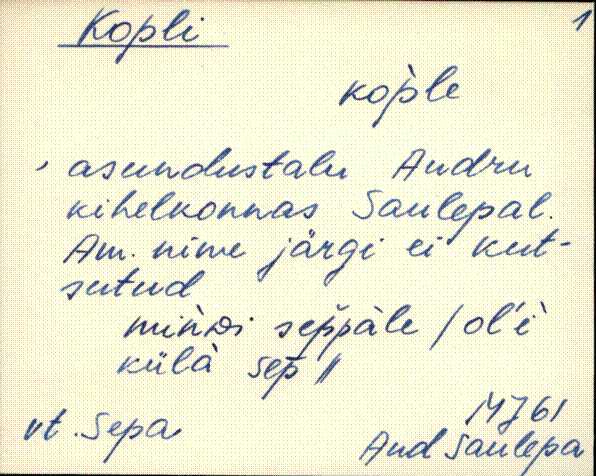 Kopli 1
kop̀le
, asundustalu Audru
kihelkonnas Saulepal.
Am. nime järgi ei kut-
sutud
seppäle / ol'è
külà sep̄ //
vt. Sepa
Aud Saulepa